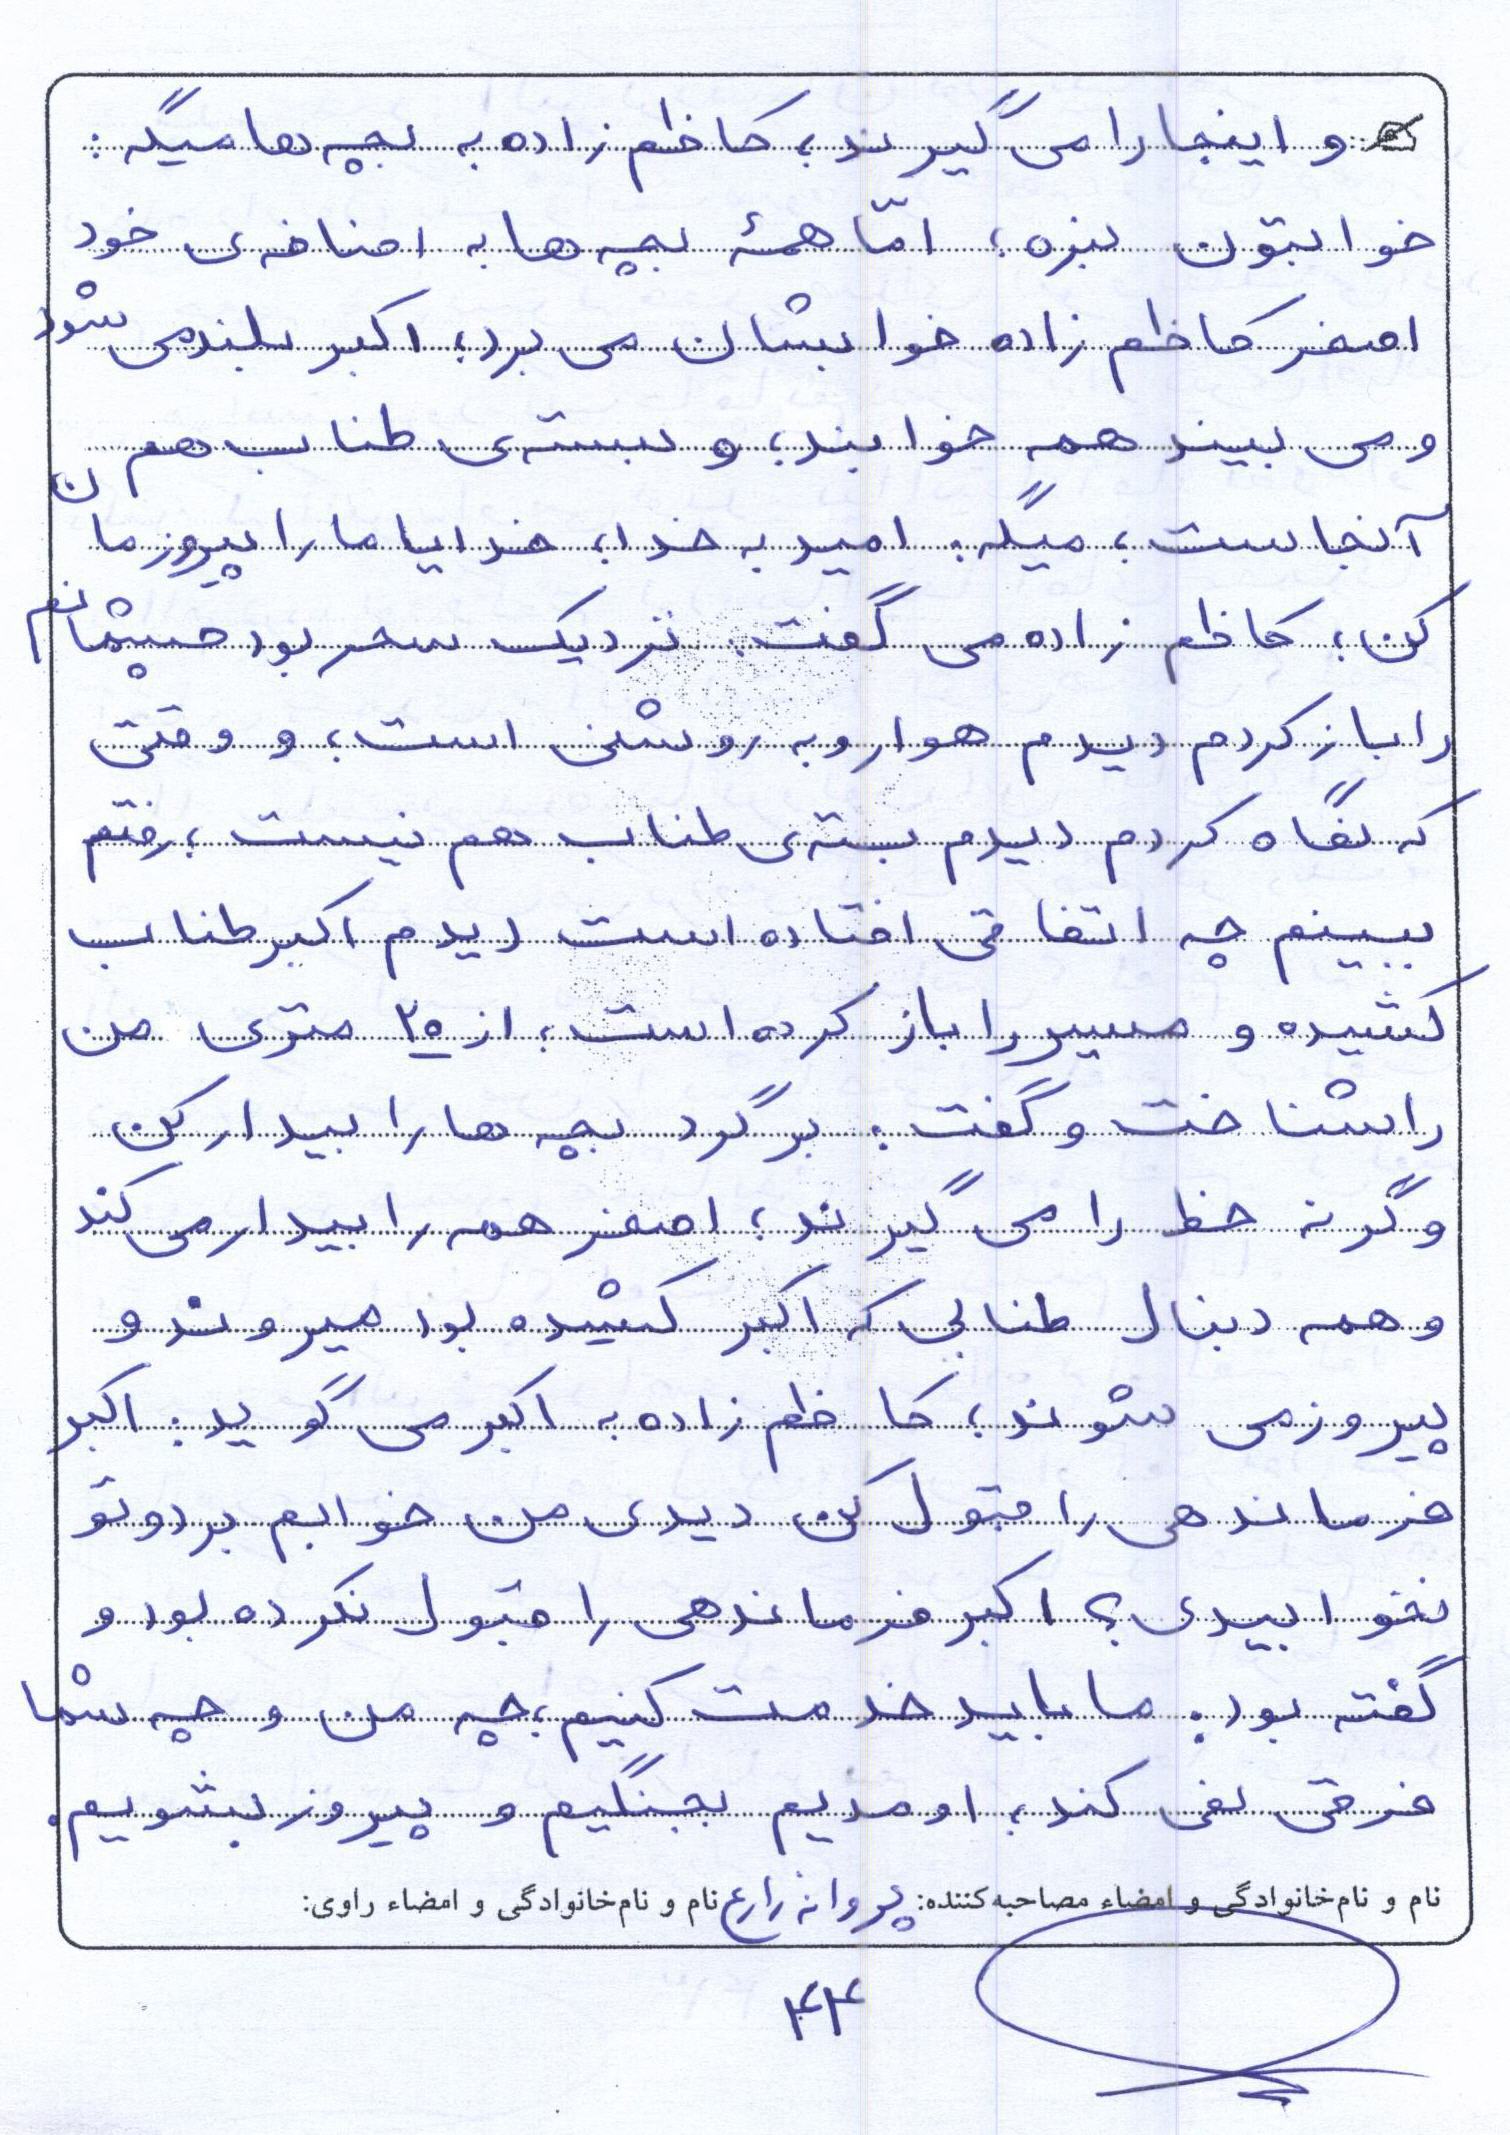 و اینجا را می گیرند، کاظم زاده به بچه ها میگه:
خوابتون نبره، امّا همهٔ بچه ها به اضافه ی خود
اصغر کاظم زاده خوابشان می برد، اکبر بلند می شود
و می بیند همه خوابند، و بسته ی طناب هم
آنجاست، میگه: امید به خدا، خدایا ما را پیروزمان
کن، کاظم زاده می گفت: نزدیک سحر بود چشمانم
را باز کردم دیدم هوا رو به روشنی است، و وقتی
که نگاه کردم دیدم بسته ی طناب هم نیست، رفتم
ببینم چه اتفاقی افتاده است دیدم اکبر طناب
کشیده و مسیر را باز کرده است، از ۲۵ متری من
را شناخت و گفت: برگرد بچه ها را بیدار کن
وگرنه خط را می گیرند، اصغر همه را بیدار می کند
و همه دنبال طنابی که اکبر کشیده بود میروند و
پیروز می شوند، کاظم زاده به اکبر می گوید: اکبر
فرماندهی را قبول کن دیدی من خوابم برد و تو
نخوابیدی؟ اکبر فرماندهی را قبول نکرده بود و
گفته بود: ما باید خدمت کنیم، چه من و چه شما
فرقی نمی کند، اومدیم بجنگیم و پیروز بشویم.
نام و نام خانوادگی و امضاء مصاحبه کننده: پروانه زارع نام و نام خانوادگی و امضاء راوی:
۴۴